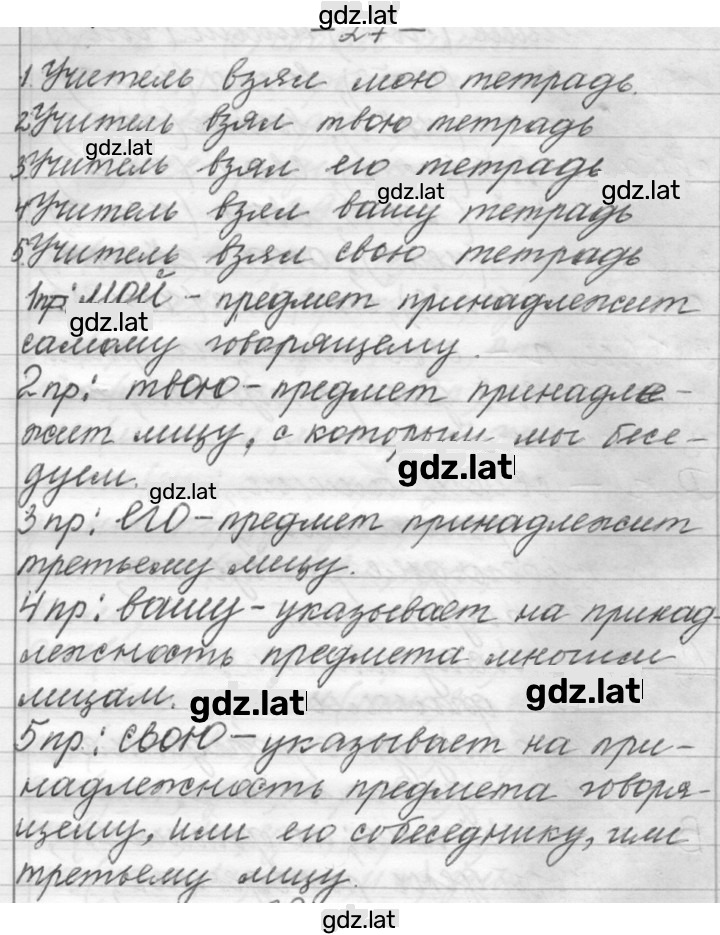 gdz.lat
- 27 -
1. Учитель взял мою тетрадь.
2. Учитель взял твою тетрадь
gdz.lat
3. Учитель взял его тетрадь
gdz.lat gdz.lat
4. Учитель взял вашу тетрадь
5. Учитель взял свою тетрадь
1пр: мой - предмет принадлежит
gdz.lat
самому говорящему.
2 пр: твою - предмет принадле-
жит лицу, с которым мы бесе-
gdz.lat
дуем.
gdz.lat
3 пр: его - предмет принадлежит
третьему лицу.
4 пр: вашу - указывает на принад-
лежность предмета многим
лицам.
gdz.lat gdz.lat
5 пр.: свою - указывает на при-
надлежность предмета говоря-
щему, или его собеседнику, или
третьему лицу.
gdz.lat